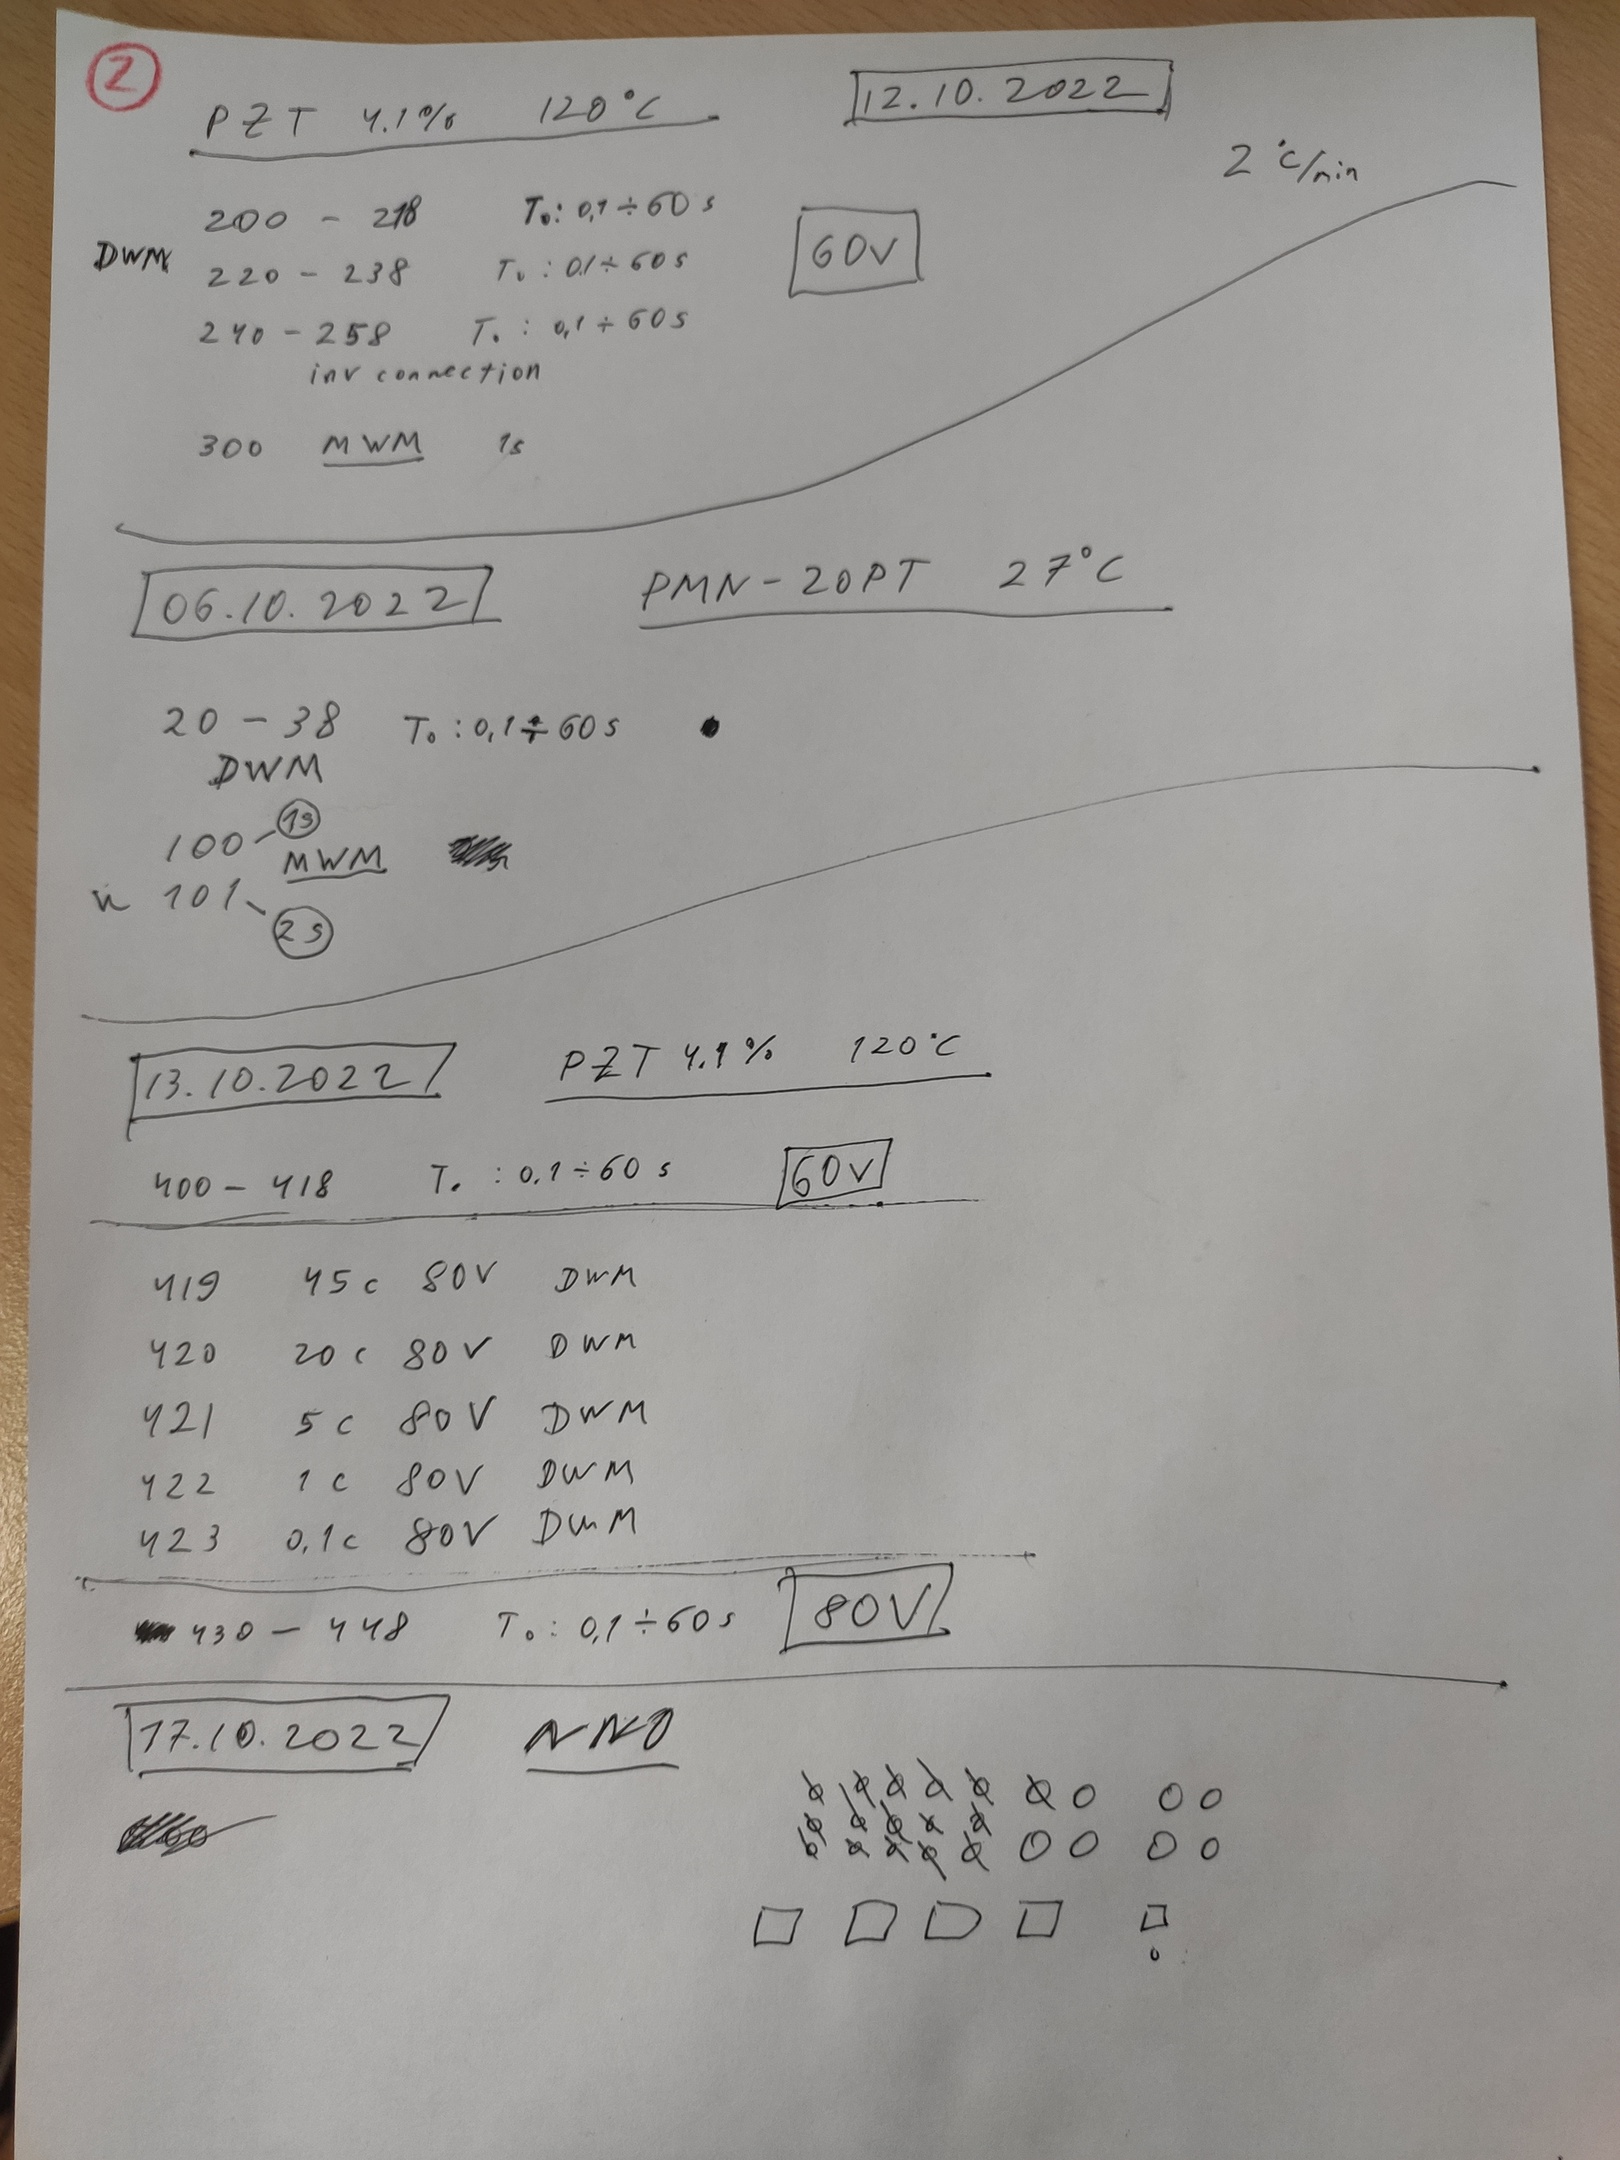 2
PZT 4.1% 120°C 12.10.2022
2°C/min
200 - 218 T₀: 0,1 ÷ 60 s
DWM 60V
220 - 238 T₀: 0.1 ÷ 60 s
240 - 258 T₀: 0,1 ÷ 60 s
inv connection
300 MWM 1s
06.10.2022 PMN-20PT 27°C
20 - 38 T₀: 0,1 ÷ 60 s
DWM
100 - 1s
MWM
и 101 - 2s
13.10.2022 PZT 4.1% 120°C
400 - 418 T₀: 0,1 ÷ 60 s 60V
419 45c 80V DWM
420 20c 80V DWM
421 5c 80V DWM
422 1c 80V DWM
423 0,1c 80V DWM
430 - 448 T₀: 0,1 ÷ 60 s 80V
17.10.2022 NNO